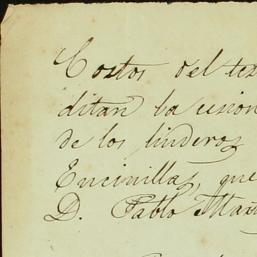 Costos del tes
ditan la cesion
de los linderos
Encinillas, que
D. Pablo Mar